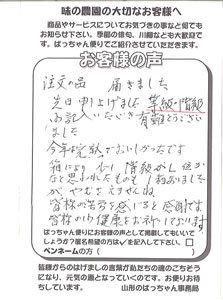 味の農園の大切なお客様へ
商品やサービスについてお気づきの事など何でも
お知らせ下さい。季節の俳句、川柳なども大歓迎です。
ばっちゃん便りでご紹介させていただきます。
お客様の声
注文の品 届きました
先日申し上げました 等級・階級
明記いただき 有難うござい
ました
今年も完熟でおいしかったです
箱により 小り 階級がL 位かな
と思いましたもの 箱ありました
が、やむをえませんね
皆様の苦労を感じると感謝です
皆様のご健康をお祈りしております
ばっちゃん便りにお客様の声として掲載してもいいで
しょうか?匿名希望の方は✓を記入して下さい。
ペンネームの方( )
皆様からのはげましの言葉が私たちの魂のごちそう
になり、元気の源となっていくのです。お便りお待
ちしています。
山形のばっちゃん事務局